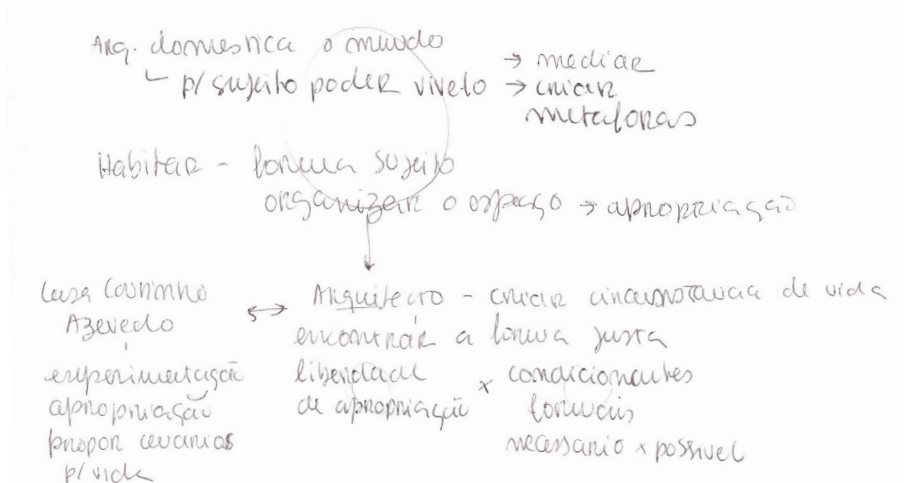 Arq. domestica o mundo
↳ p/ sujeito poder vivelo → mediar
→ criar
metaforas
Habitar - forma sujeito
organizar o espaço → apropriação
Casa Coutinho
Azevedo
experimentação
apropriação
propor cenarios
p/ vida
↔ Arquitecto - criar circunstancia de vida
encontrar a forma justa
liberdade
de apropriação × condicionantes
formais
necessario × possivel